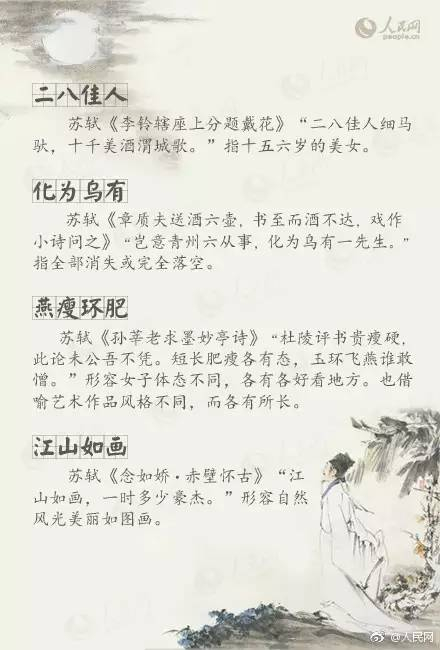 人民网
people.cn
二八佳人
苏轼《李钤辖座上分题戴花》“二八佳人细马
驮，十千美酒渭城歌。”指十五六岁的美女。
化为乌有
苏轼《章质夫送酒六壶，书至而酒不达，戏作
小诗问之》“岂意青州六从事，化为乌有一先生。”
指全部消失或完全落空。
燕瘦环肥
苏轼《孙莘老求墨妙亭诗》“杜陵评书贵瘦硬，
此论未公吾不凭。短长肥瘦各有态，玉环飞燕谁敢
憎。”形容女子体态不同，各有各好看地方。也借
喻艺术作品风格不同，而各有所长。
江山如画
苏轼《念如娇·赤壁怀古》“江
山如画，一时多少豪杰。”形容自然
风光美丽如图画。
@人民网